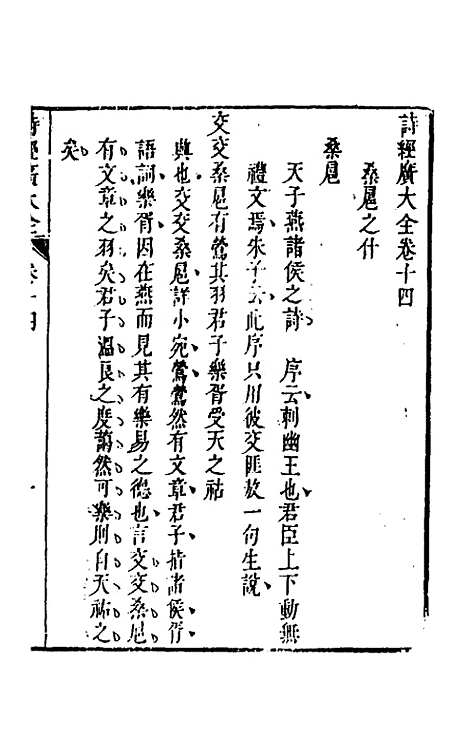 詩經廣大全卷十四
桑扈之什
桑扈
天子燕諸侯之詩　序云刺幽王也君臣上下動無
禮文焉朱子云此序只用彼交匪敖一句生說
交交桑扈有鶯其羽君子樂胥受天之祜
興也交交桑扈詳小宛鶯鶯然有文章君子指諸侯胥
語詞樂胥因在燕而見其有樂易之德也言交交桑扈
有文章之羽矣君子溫良之度藹然可樂則自天祐之
矣
詩經廣大全　卷十四